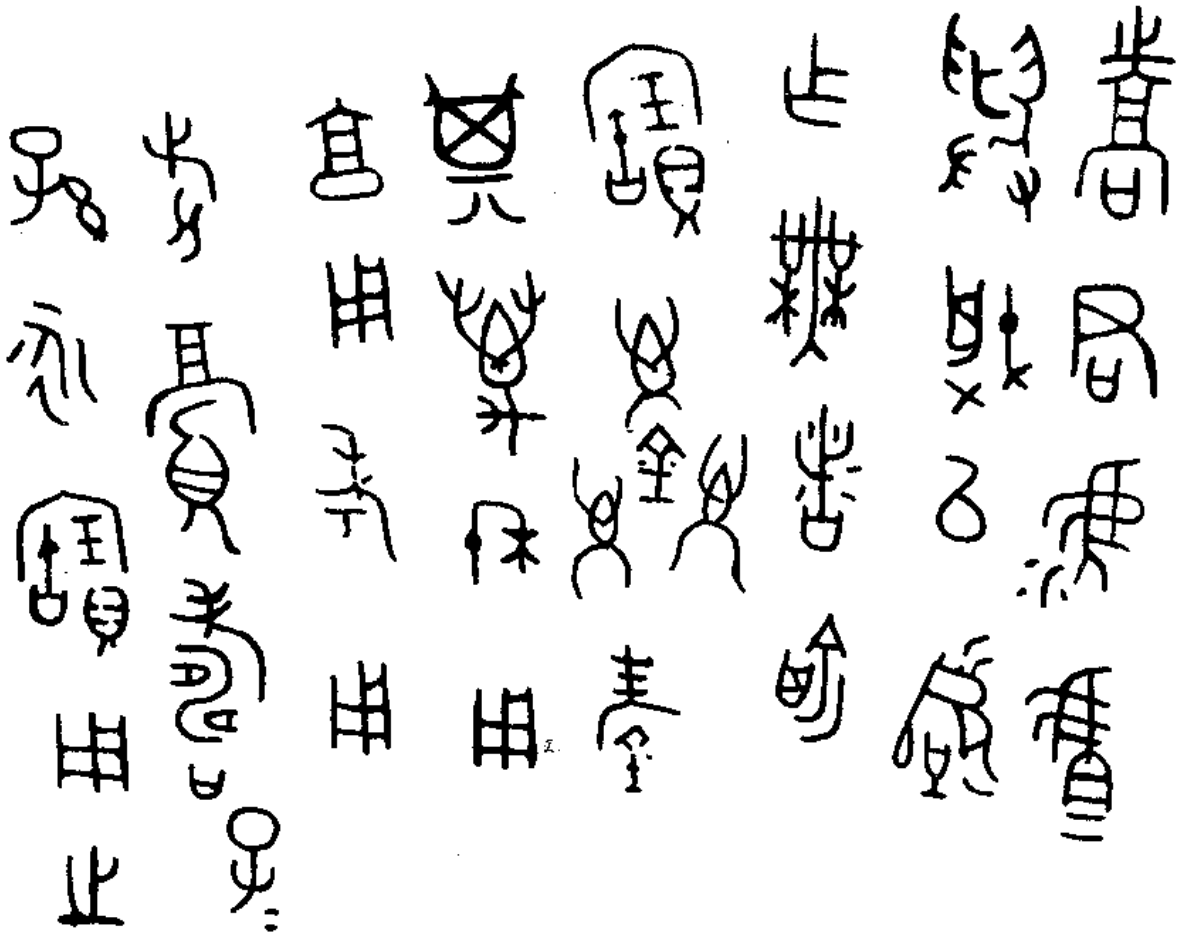 喬君淲虘
與朕以
乍無者俞
寶
其萬年用
享用考用
眉壽子=
孫永寶用之